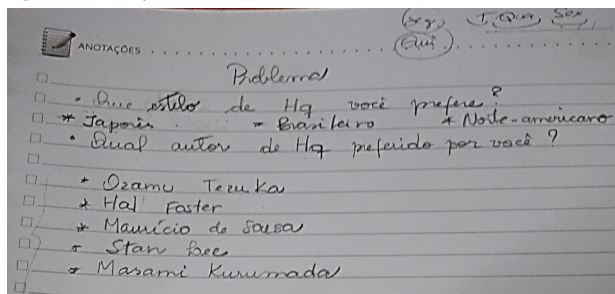 Seg, T, Qua, Sex,
Qui
ANOTAÇÕES
Problema
• Que estilo de Hq você prefere?
* Japonês * Brasileiro * Norte-americano
• Qual autor de Hq preferido por você?
* Ozamu Tezuka
* Hal Foster
* Maurício de Sousa
* Stan Lee
* Masami Kurumada